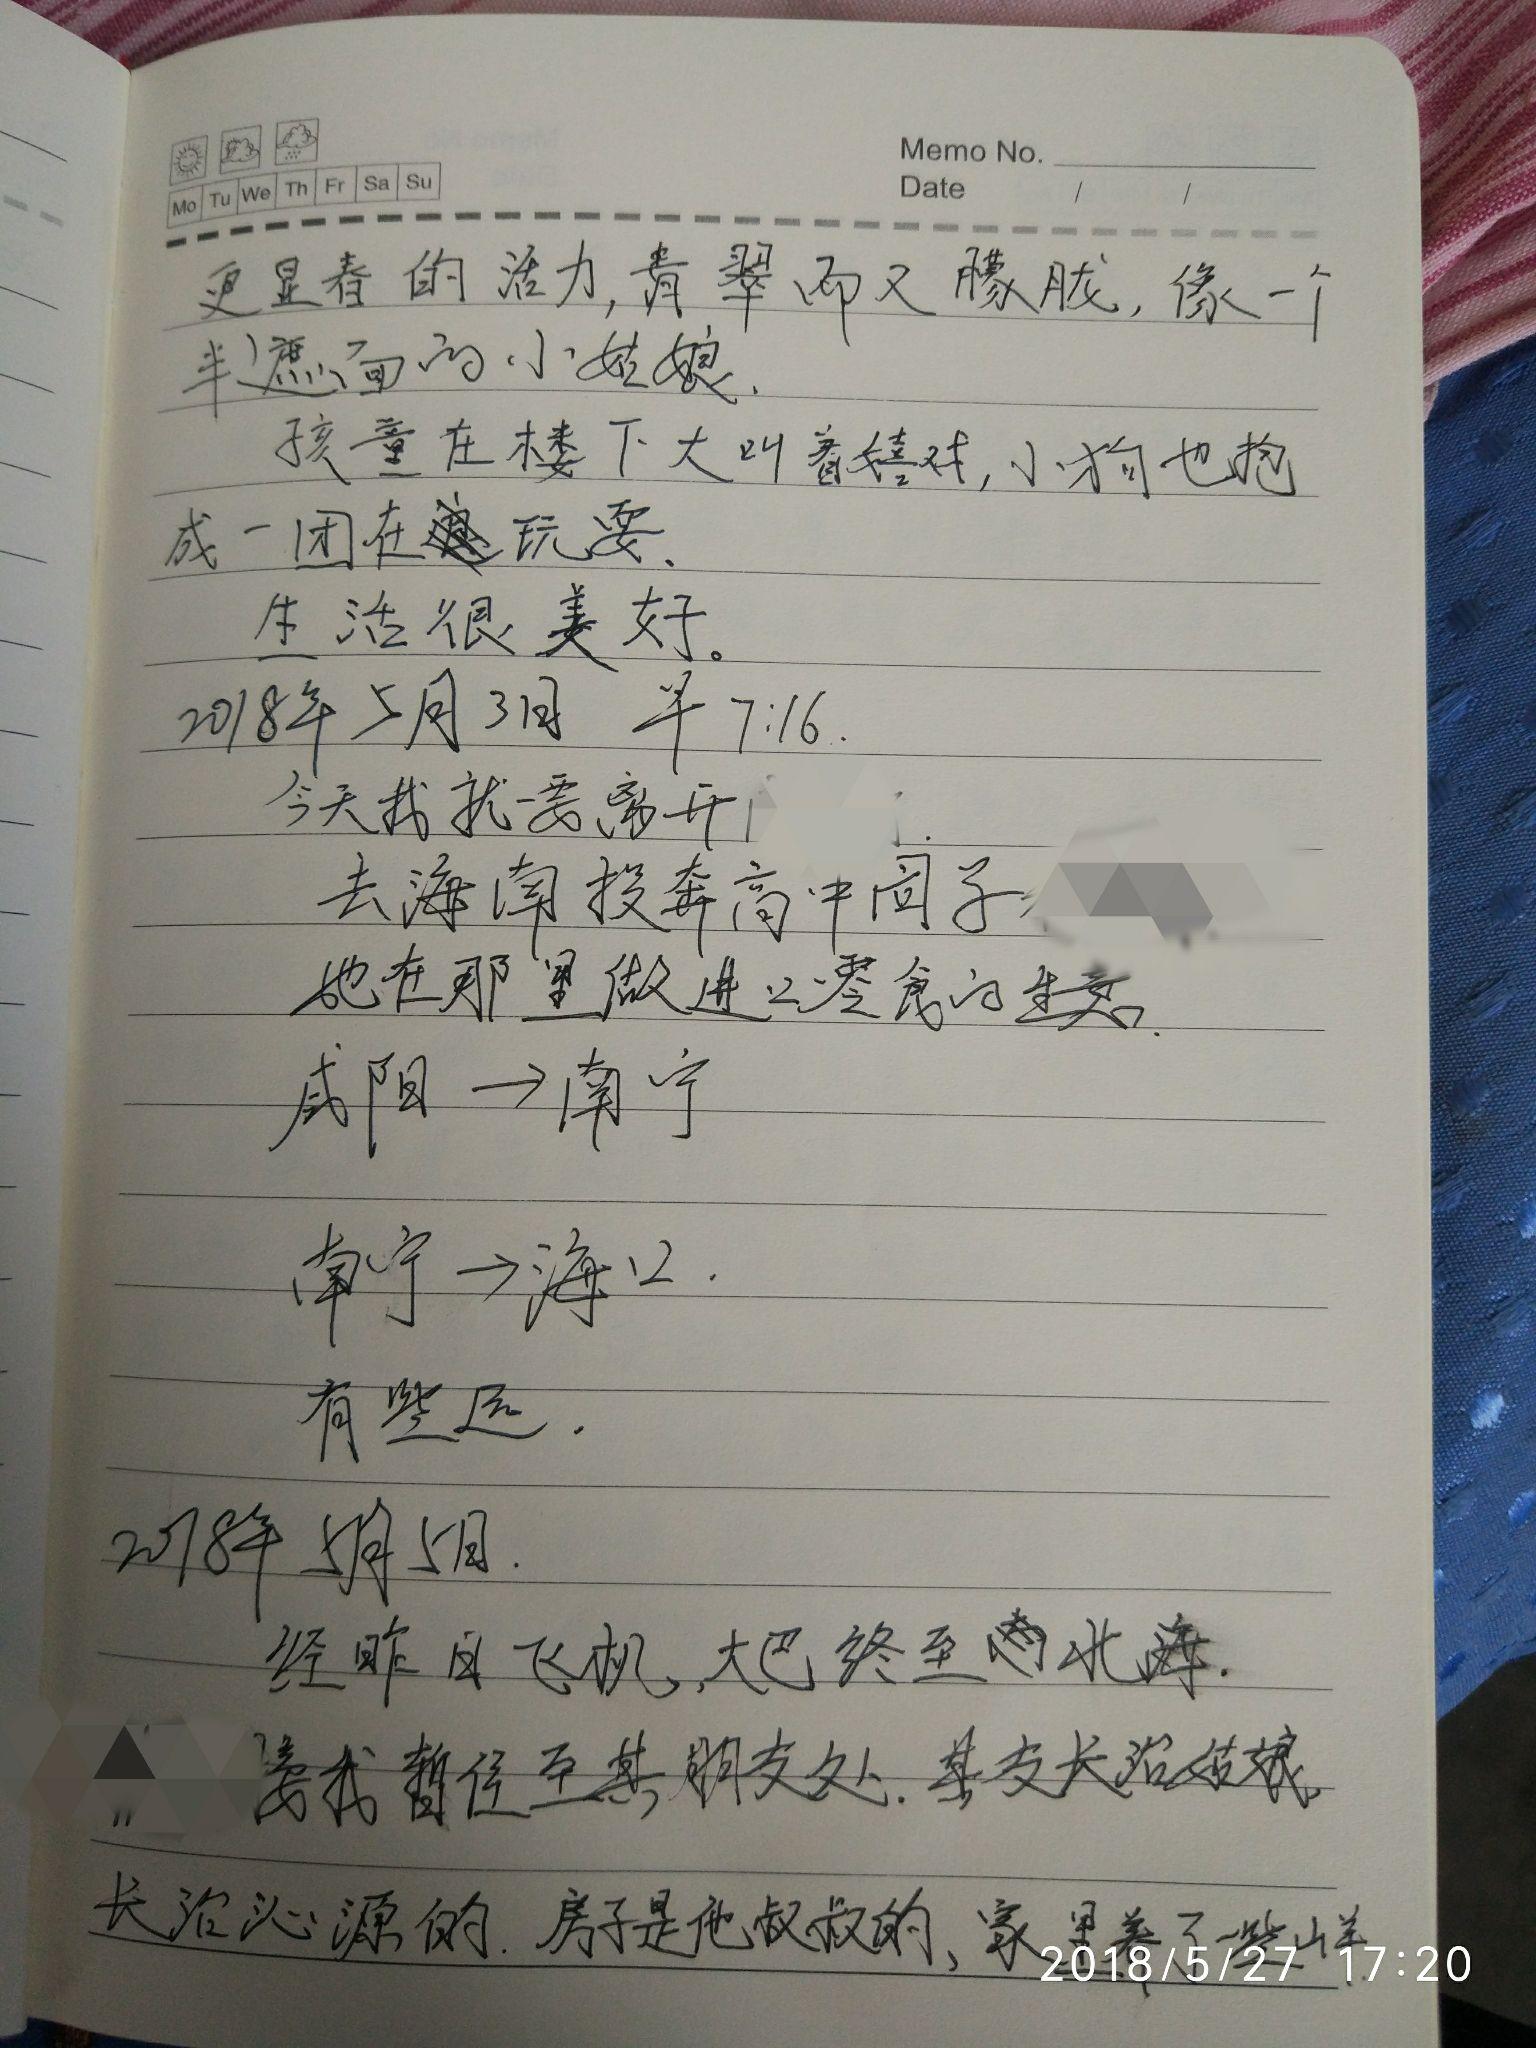 Memo No.
Mo Tu We Th Fr Sa Su
Date / /
更显春的活力,青翠而又朦胧,像一个
半遮面的小姑娘.
孩童在楼下大叫着嬉戏,小狗也抱
成一团在玩耍.
生活很美好。
2018年5月3日 早7:16.
今天我就要离开
去海南投奔高中同学
她在那里做进口零食的生意.
咸阳→南宁
南宁→海口.
有些远.
2018年5月5日.
经昨日飞机,大巴终至北海.
接我暂住至其朋友处.其友长治姑娘,
长治沁源的.房子是他叔叔的,家里养了一些山羊
2018/5/27 17:20